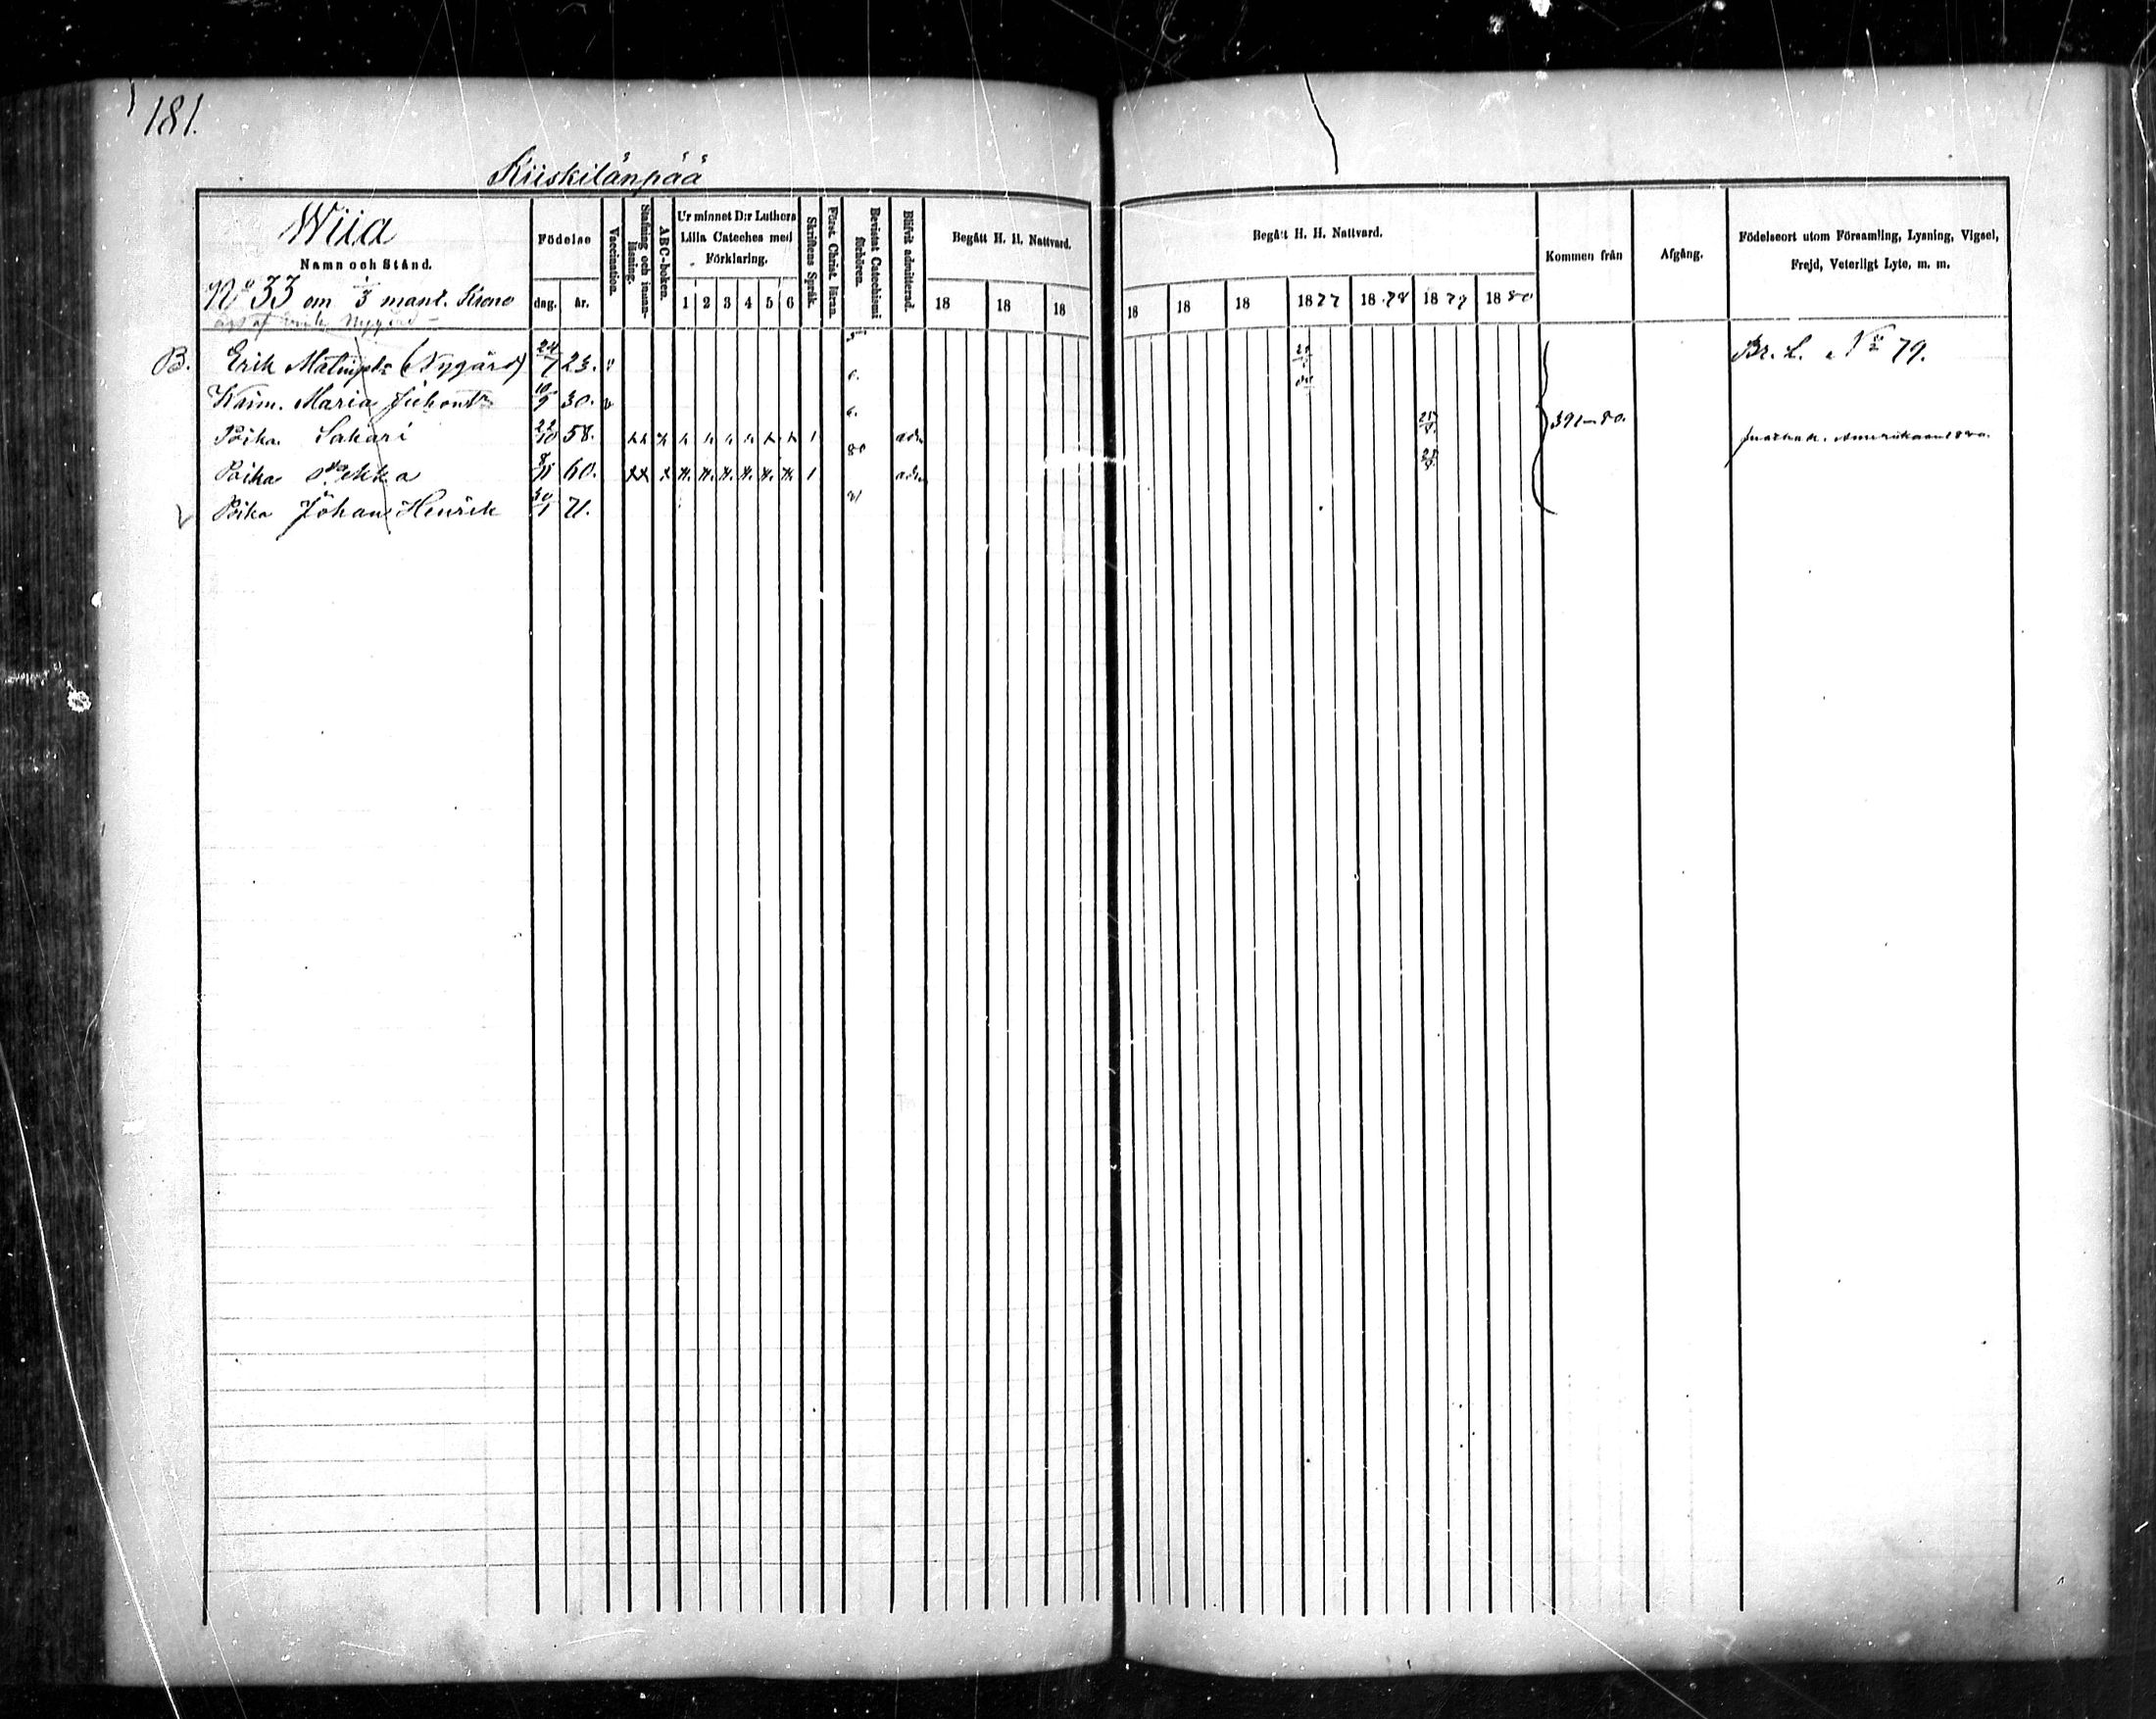 181.
Kiiskilänpää
Wiia
Namn och Stånd.
No 33 om 1/3 mant. Krono
Födelse
dag. år.
Vaccination.
Stafning och innanläsning.
ABC-boken.
Ur minnet D:r Luthers Lilla Cateches med Förklaring.
1 2 3 4 5 6
Skriftens Språk.
Först. Christ. läran.
Bevistat Catechismi förhören.
Blifvit admitterad.
Begått H. H. Nattvard.
18 18 18
Begått H. H. Nattvard.
18 18 18 1877 1878 1879 1880
Kommen från
Afgång.
Födelseort utom Församling, Lysning, Vigsel, Frejd, Veterligt Lyte, m. m.
B. Erik Matinp. (Nygård) 24/7 23. Br. L. No 79.
Waim. Maria Juhont. 10/9 30.
Poika Sakari 22/10 58. 1 adm. 391-80. Amerikaan
Poika 8/11 60. 1 adm.
Poika Johan Henrik 30/1 71.